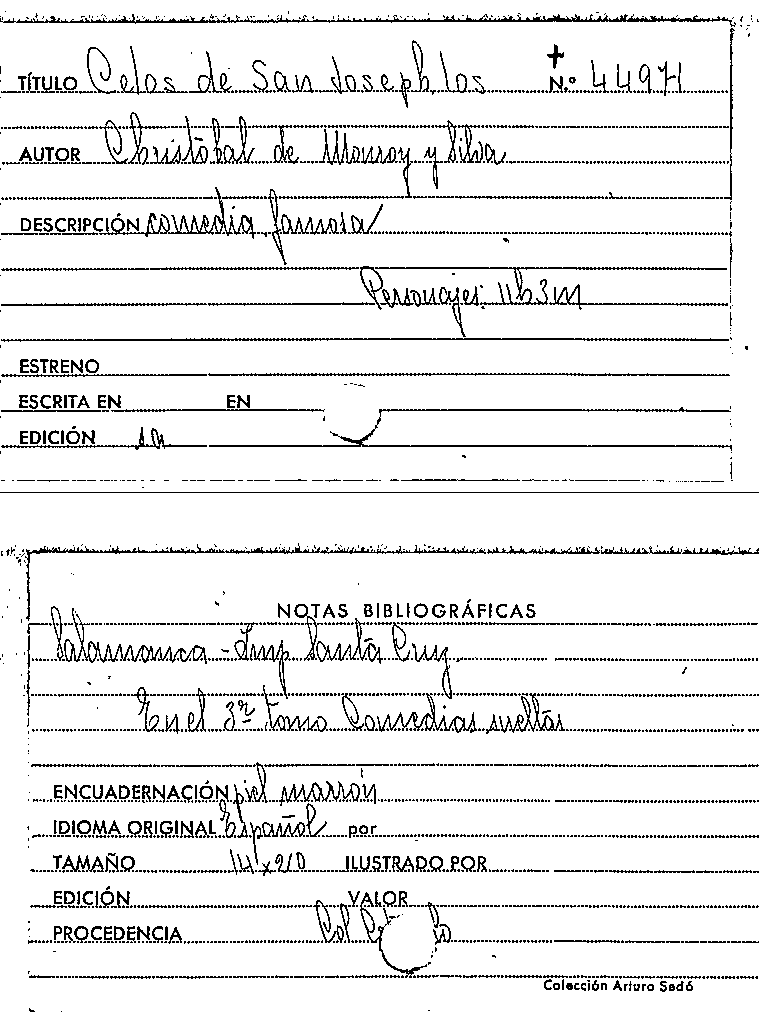 TÍTULO Celos de San Joseph, los + N.º 44971
AUTOR Christóbal de Monroy y Silva
DESCRIPCIÓN comedia famosa
Personajes: 11h3m
ESTRENO
ESCRITA EN EN
EDICIÓN s.a
NOTAS BIBLIOGRÁFICAS
Salamanca - Imp Santa Cruz
En el 3er tomo Comedias sueltas
ENCUADERNACIÓN piel marrón
IDIOMA ORIGINAL Español por
TAMAÑO 14'x210 ILUSTRADO POR
EDICIÓN VALOR
PROCEDENCIA Col
Colección Arturo Sedó